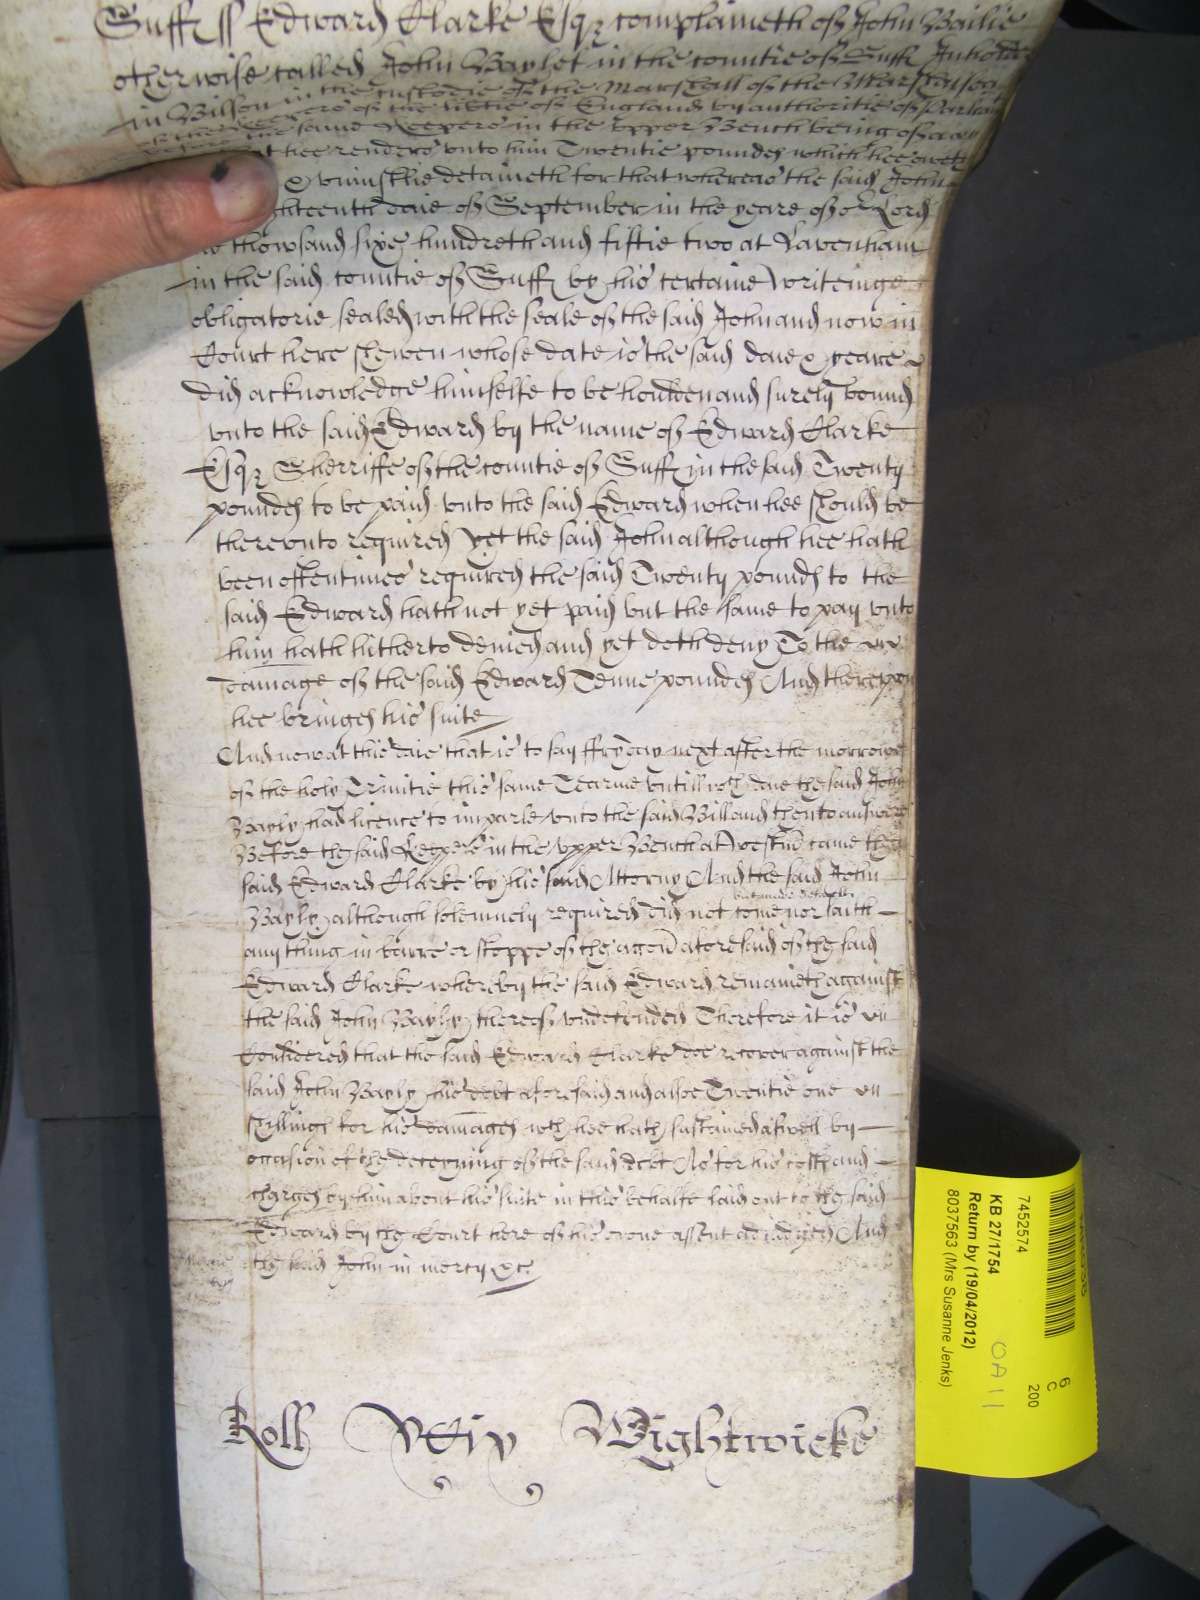 Suff ss Edward Clarke Esqr complaineth of John Bailie
otherwise called John Bayley in the countie of Suff
in the custodie of the Marshall of the Marshalsea
Keepers of the libtie of England by authoritie of Parliam
the same Keepers in the upper Bench being of a
hee renders unto him Twentie poundes which hee oweth
& uniustlie detaineth for that whereas the said John
ghteenth daie of September in the yeare of or Lord
thowsand sixe hundreth and fiftie two at Lavenham
in the said countie of Suff by his certaine writeinge
obligatorie sealed with the seale of the said John and now in
Court here shewen whose date is the said daie & yeare
did acknowledge himselfe to be houlden and surely bound
unto the said Edward by the name of Edward Clarke
Esqr Sherriffe of the countie of Suff in the said Twenty
poundes to be paid unto the said Edward when hee should be
thereunto required Yet the said John although hee hath
been oftentimes required the said Twenty pounds to the
said Edward hath not yet paid but the same to pay unto
him hath hitherto denied and yet doth deny To the
damage of the said Edward Tenne poundes And thereupon
hee bringes his suite
And now at this daie that is to say ffryday next after the morrowe
of the holy Trinitie this same Tearme untill wch daie the said John
Bayly had licence to imparle unto the said Bill and then to answere
Before the said Keepers in the upper Bench at Westm came the
said Edward Clarke by his said Attorny And the said John
Bayly although solemnely required did not come nor saith
any thing in barre or stoppe of the accon aforesaid of the said
Edward Clarke whereby the said Edward remaineth against
the said John Bayly thereof undefended Therefore it is
Considered that the said Edward Clarke doe recover against the
said John Bayly his debt aforesaid and alsoe Twentie one
shillings for his damages wch hee hath sustained aswell by
occasion of the deteyning of the said debt As for his costs and
charges by him about his suite in this behalfe laid out to the said
Edward by the Court here of his owne assent adiudged And
the said John in mercy &c
Roll Wightwicke
7452574
KB 27/1754
Return by (19/04/2012)
8037563 (Mrs Susanne Jenks)
6
C
200